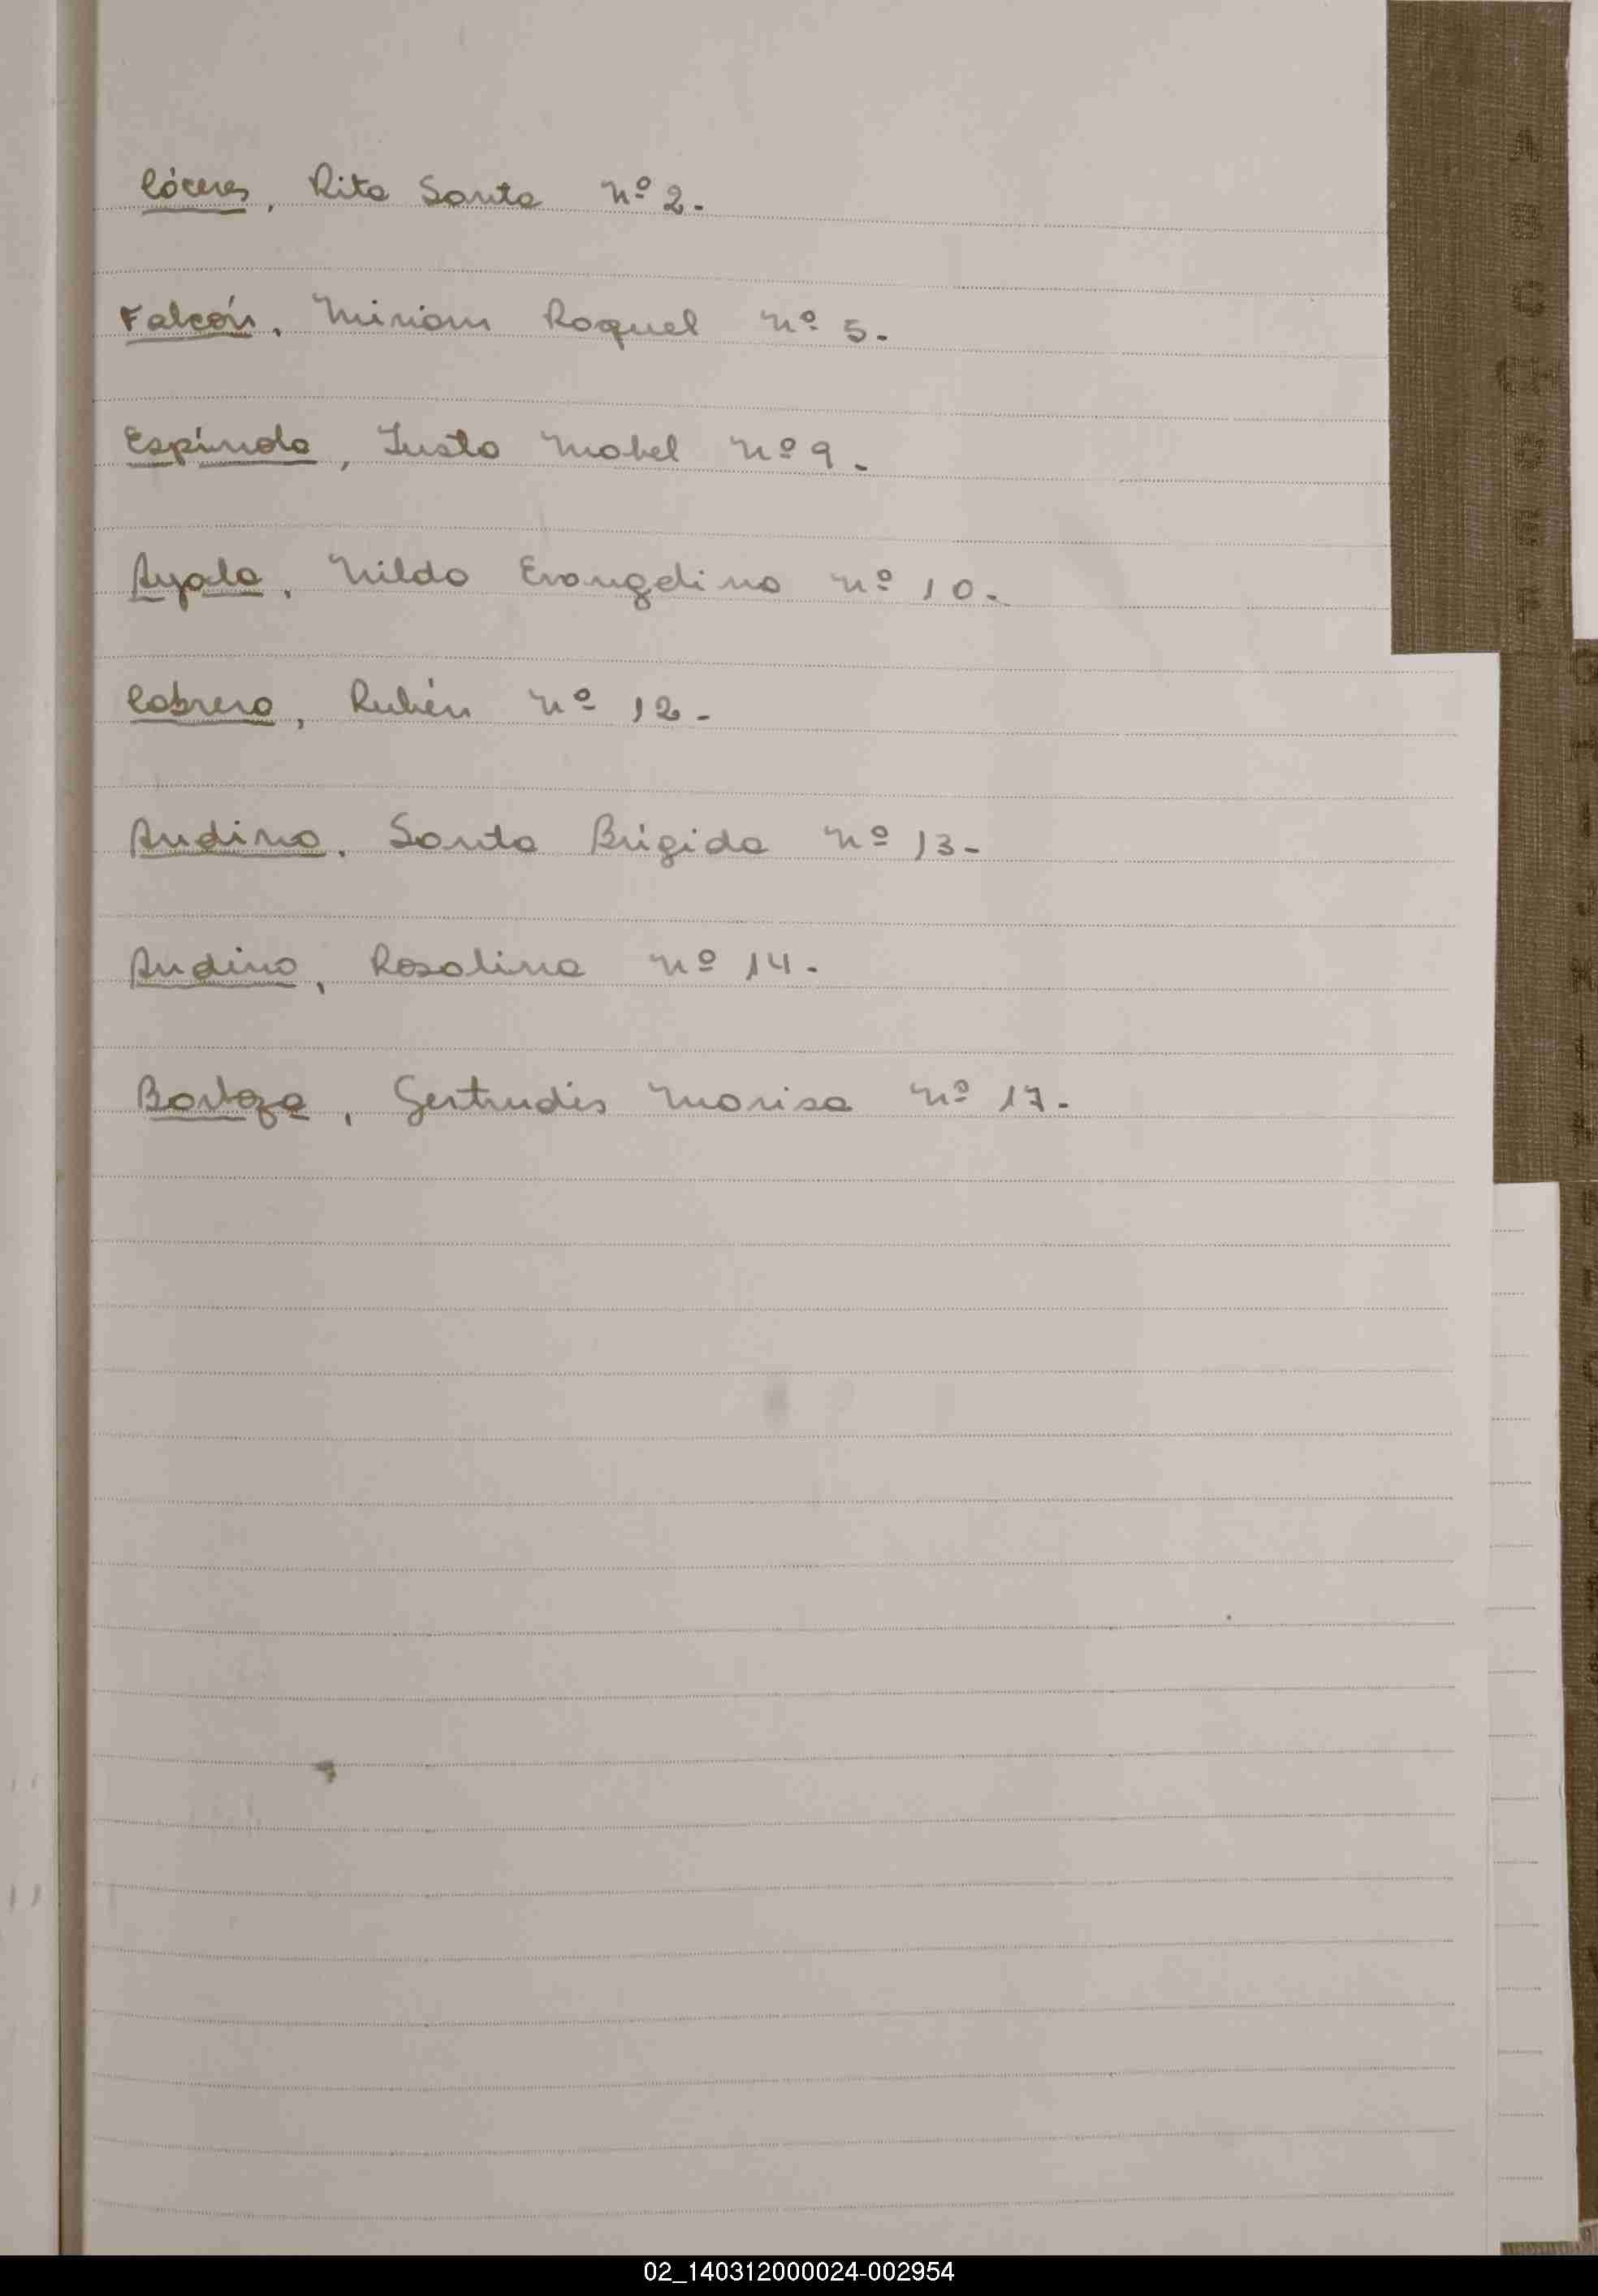 Cáceres, Rita Santa Nº 2.
Falcón, Miriam Raquel Nº 5.
Espíndola, Justa Mabel Nº 9.
Ayala, Nilda Evangelina Nº 10.
Cabrera, Rubén Nº 12.
Andino, Santa Brígida Nº 13.
Andino, Rosalina Nº 14.
Barboza, Gertrudis Marisa Nº 17.
02_140312000024-002954